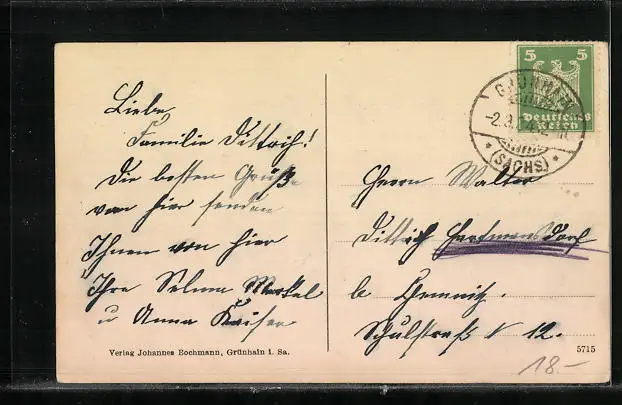 Liebe
Familie Dittrich!
Die besten Grüße
von hier senden
Ihnen von hier
Ihre Selma Merkel
u Anna Kaiser
Verlag Johannes Bochmann, Grünhain i. Sa.
5 5
Deutsches
Reich
GRÜNHAIN
-2.3.
(SACHS)
Herrn Walter
Dittrich Hartmannsdorf
b Chemnitz.
Schulstraß N 12.
5715
18.-